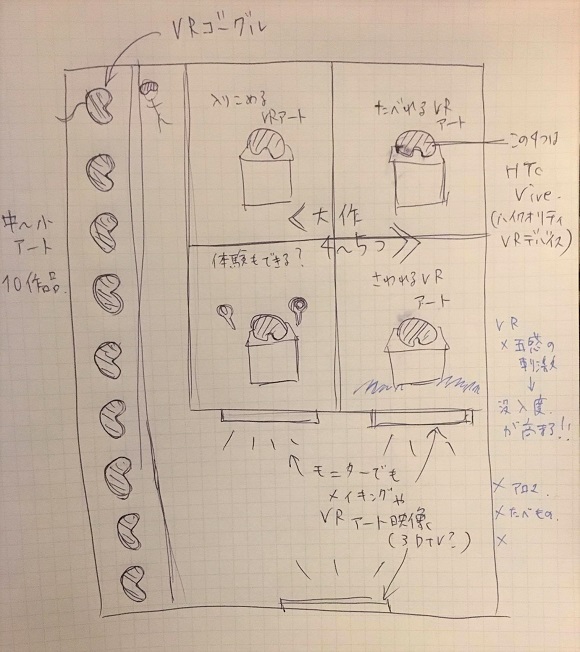 VRゴーグル
入りこめる
VRアート
たべれるVR
アート
この4つは
HTC
Vive.
(ハイクオリティ
VRデバイス)
≪大作
4〜5つ≫
中〜小
アート
10作品.
体験もできる?
さわれるVR
アート
VR
×五感の
刺激
↓
没入度.
が高まる!!
モニターでも
メイキングや
VRアート映像.
(3DTV?)
×アロマ.
×たべもの.
×